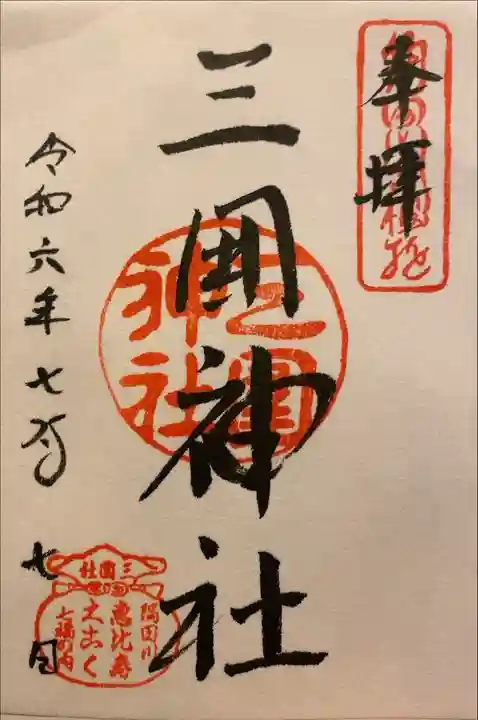 奉拝
三囲神社
三圍神社
令和六年七月七日
三圍社
隅田川
恵比寿
大こく
七福の内